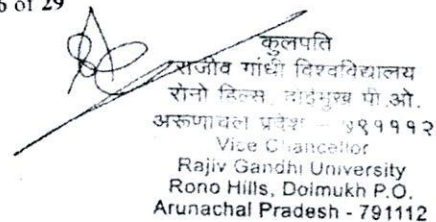 of 29
कुलपति
राजीव गांधी विश्वविद्यालय
रोनो हिल्स, दोईमुख पी.ओ.
अरूणाचल प्रदेश - ७९१११२
Vice Chancellor
Rajiv Gandhi University
Rono Hills, Doimukh P.O.
Arunachal Pradesh - 791112